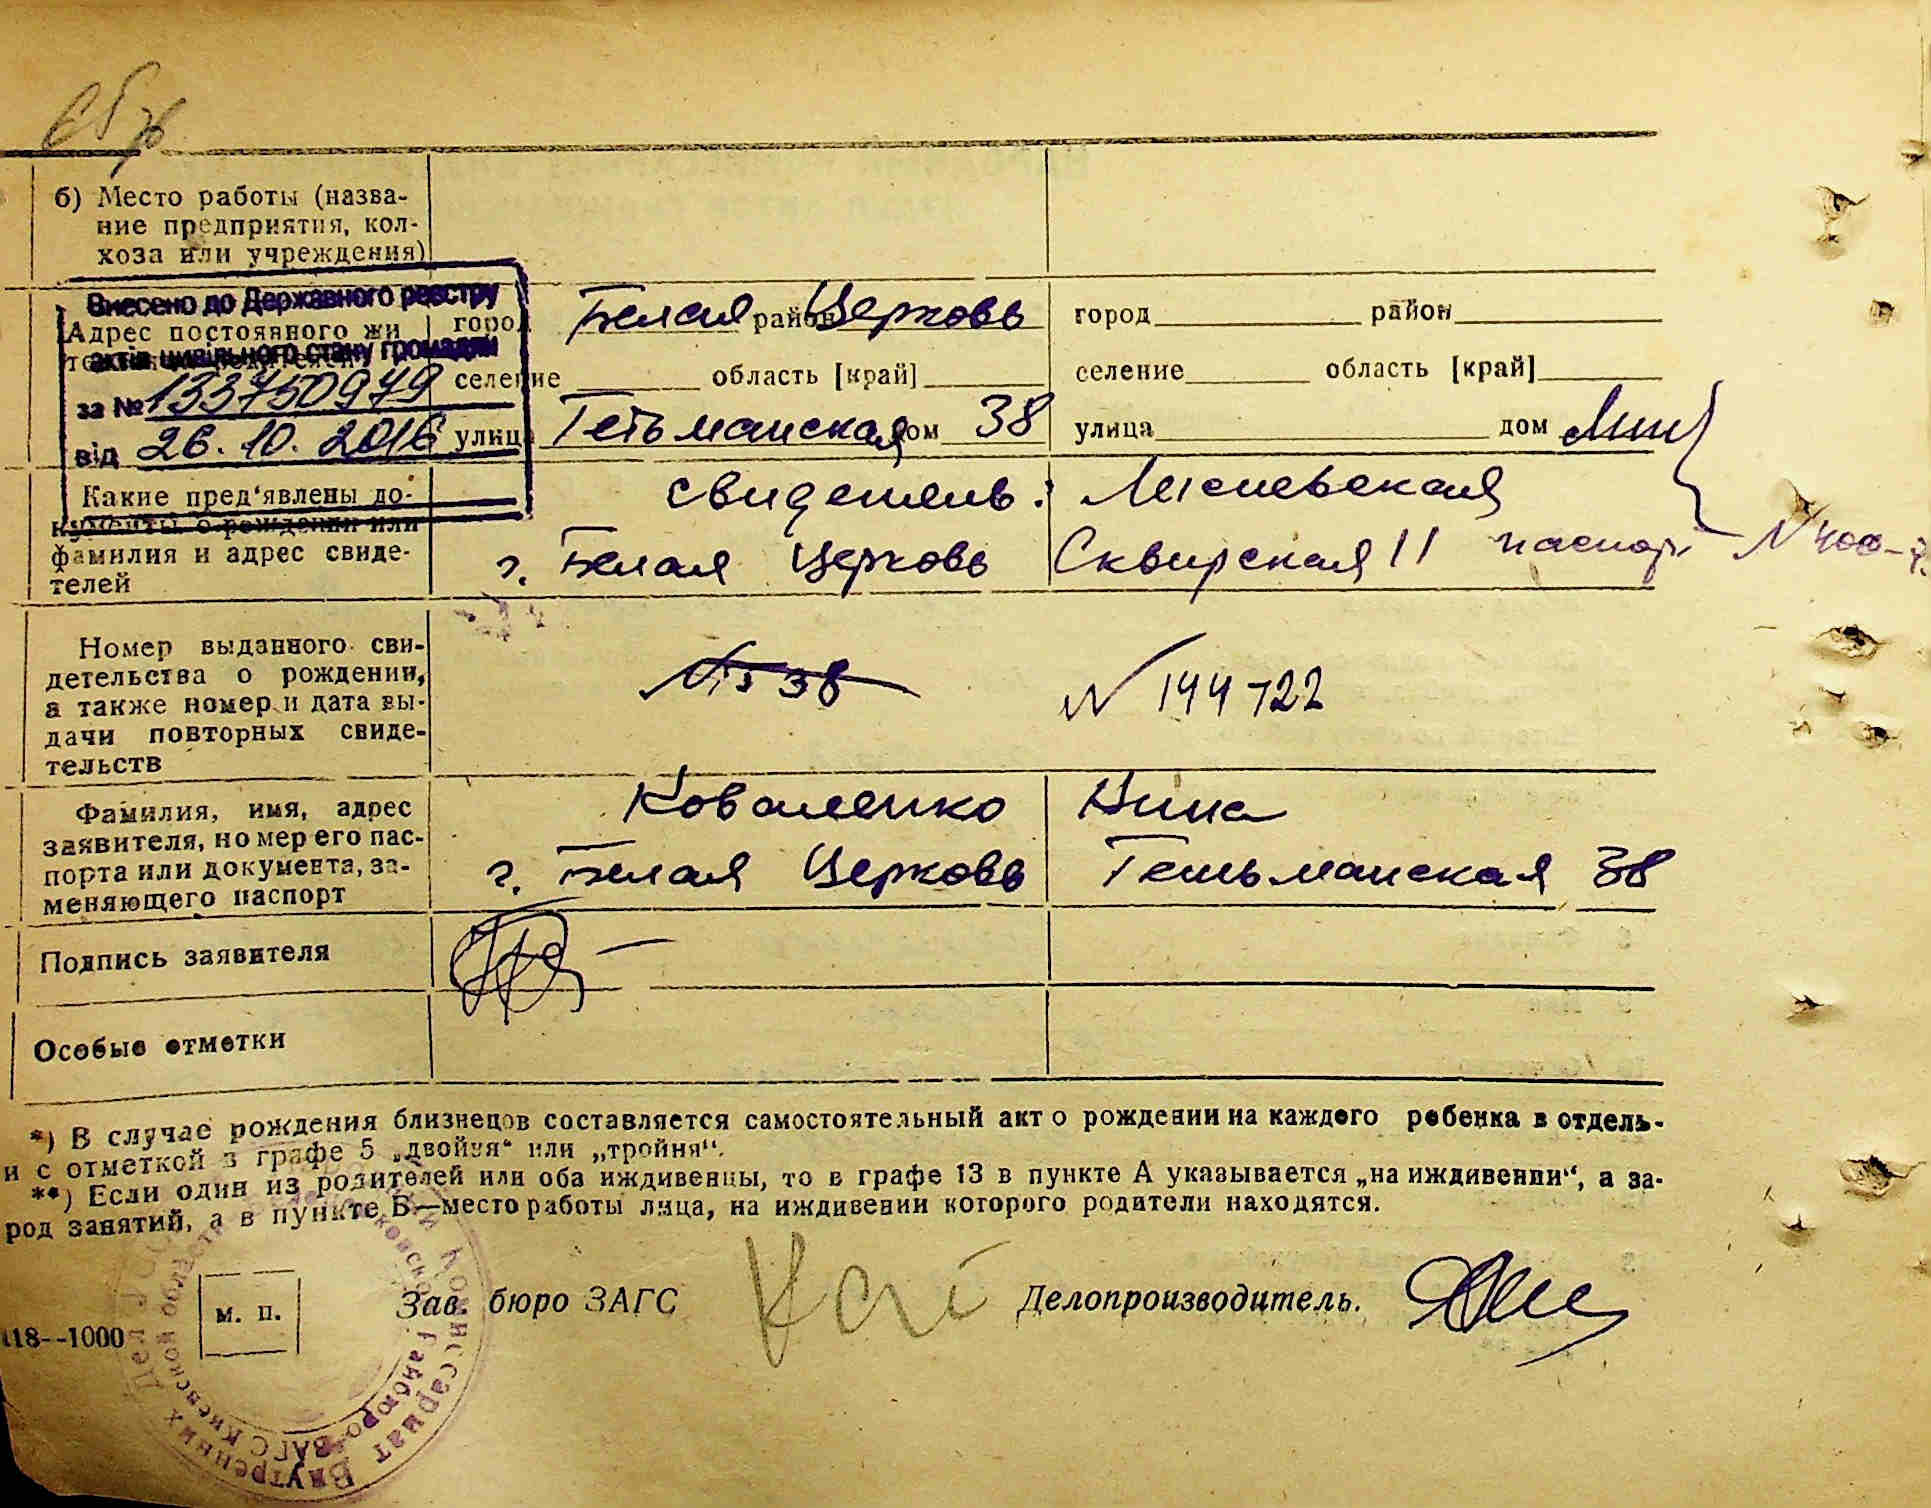 б) Место работы (назва-
ние предприятия, кол-
хоза или учреждения)
Внесено до Державного реєстру
актів цивільного стану громадян
за № 133750979
від 26.10.2016
Адрес постоянного жи
город Белая район Церковь
селение область [край]
улица Гетьманская дом 38
город район
селение область [край]
улица дом
Какие пред'явлены до-
кументы о рождении или
фамилия и адрес свиде-
телей
свидетель:
г. Белая Церковь Сквирская 11 паспорт № 400-
Номер выданного сви-
детельства о рождении,
а также номер и дата вы-
дачи повторных свиде-
тельств
№ 38
№ 144722
Фамилия, имя, адрес
заявителя, номер его пас-
порта или документа, за-
меняющего паспорт
Коваленко Нина
г. Белая Церковь Гетьманская 38
Подпись заявителя
Особые отметки
*) В случае рождения близнецов составляется самостоятельный акт о рождении на каждого ребенка в отдель-
и с отметкой в графе 5 „двойня“ или „тройня“.
**) Если один из родителей или оба иждивенцы, то в графе 13 в пункте А указывается „на иждивении“, а за-
род занятий, а в пункте Б—место работы лица, на иждивении которого родители находятся.
м. п.
Зав. бюро ЗАГС
Делопроизводитель.
118--1000
Комиссариат Внутренних Дел
райбюро ЗАГС Киевской